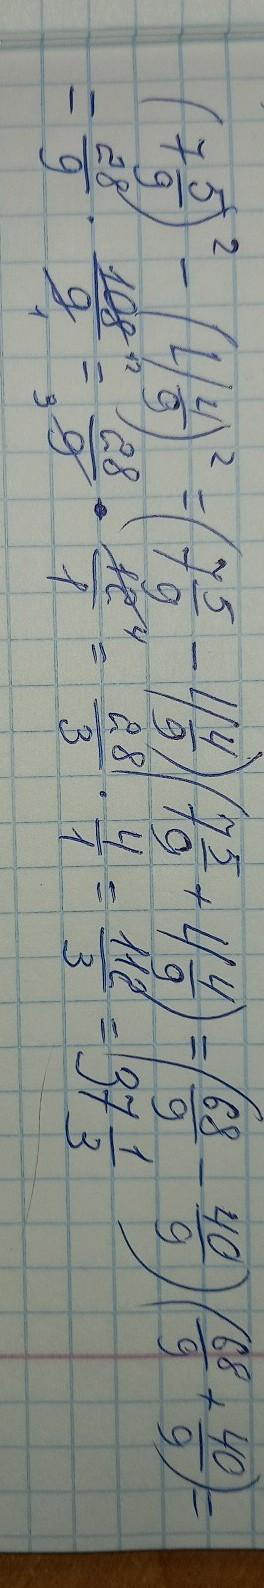 (7 5/9)² - (4 4/9)² = (7 5/9 - 4 4/9)(7 5/9 + 4 4/9) = (68/9 - 40/9)(68/9 + 40/9) =
= 28/9 · 108/9 = 28/9 · 12/1 = 28/3 · 4/1 = 112/3 = 37 1/3